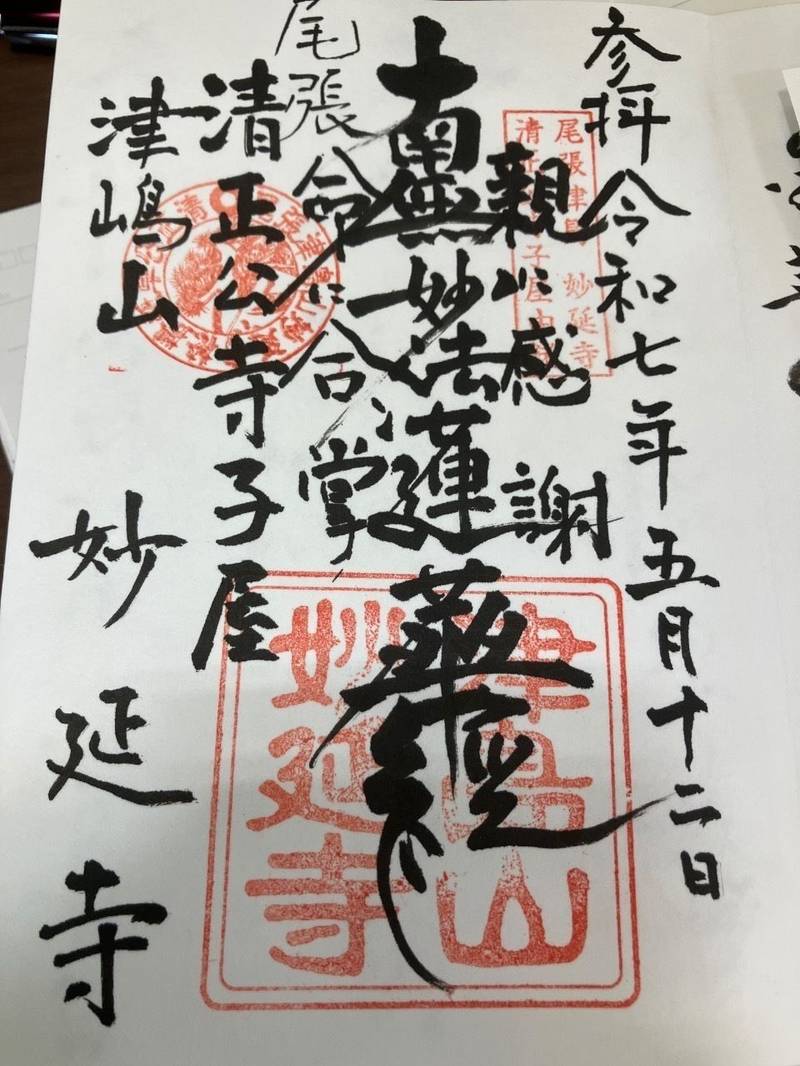 参拝令和七年五月十二日
親に感謝
南無妙法蓮華経
命に合掌
尾張
清正公寺子屋
津嶋山
妙延寺
尾張津島 妙延寺
津島山
妙延寺